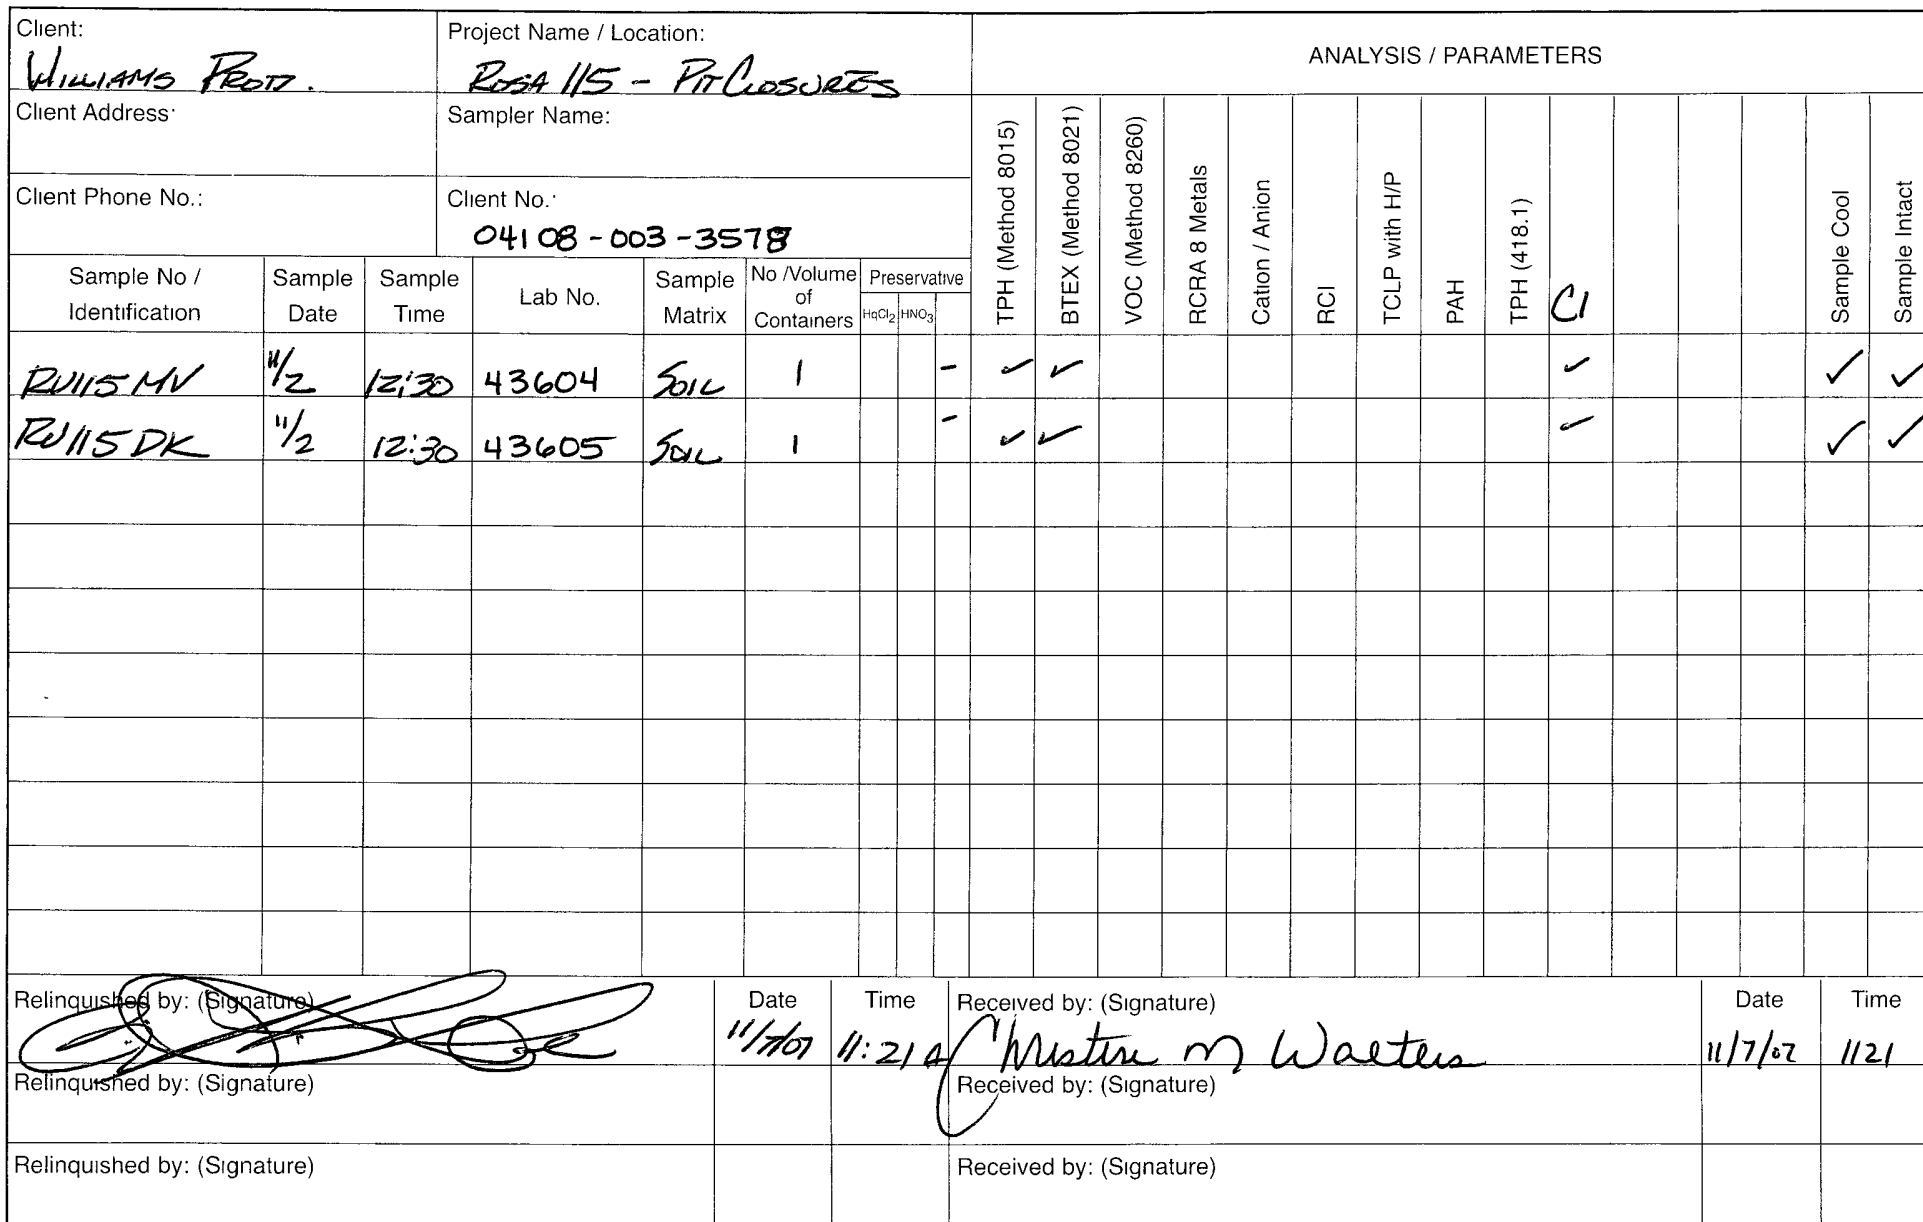 Client:
WILLIAMS PROD.
Project Name / Location:
ROSA 115 - PIT CLOSURES
ANALYSIS / PARAMETERS
Client Address:
Sampler Name:
Client Phone No.:
Client No.:
04108-003-3578
Sample No / Identification
Sample Date
Sample Time
Lab No.
Sample Matrix
No /Volume of Containers
Preservative
HgCl2
HNO3
TPH (Method 8015)
BTEX (Method 8021)
VOC (Method 8260)
RCRA 8 Metals
Cation / Anion
RCI
TCLP with H/P
PAH
TPH (418.1)
Cl
Sample Cool
Sample Intact
RU115 MV 11/2 12:30 43604 SOIL 1 - ✓ ✓ ✓ ✓ ✓
RU115 DK 11/2 12:30 43605 SOIL 1 - ✓ ✓ ✓ ✓ ✓
Relinquished by: (Signature)
Date
11/7/07
Time
11:21 A
Received by: (Signature)
Christine M Walters
Date
11/7/07
Time
1121
Relinquished by: (Signature)
Received by: (Signature)
Relinquished by: (Signature)
Received by: (Signature)